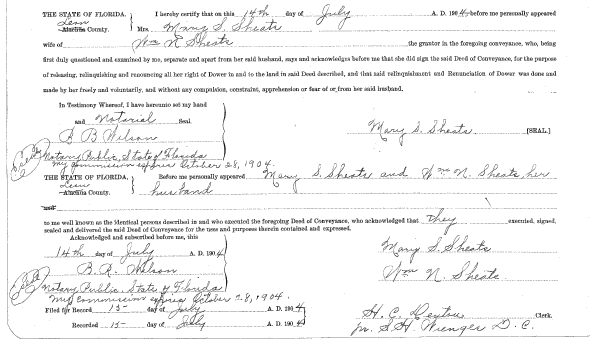 THE STATE OF FLORIDA. I hereby certify that on this 14th day of July A. D. 1904 before me personally appeared
Leon
Alachua County. Mrs. Mary S. Sheats
wife of Wm N Sheats the grantor in the foregoing conveyance, who, being
first duly questioned and examined by me, separate and apart from her said husband, says and acknowledges before me that she did sign the said Deed of Conveyance, for the purpose
of releasing, relinquishing and renouncing all her right of Dower in and to the land in said Deed described, and that said relinquishment and Renunciation of Dower was done and
made by her freely and voluntarily, and without any compulsion, constraint, apprehension or fear of or from her said husband.
In Testimony Whereof, I have hereunto set my hand
and Notarial Seal.
B B Wilson Mary S. Sheats [SEAL.]
Notary Public, State of Florida
My commission expires October 28, 1904.
THE STATE OF FLORIDA. Before me personally appeared Mary S. Sheats and Wm N. Sheats, her
Leon
Alachua County. husband
and
to me well known as the identical persons described in and who executed the foregoing Deed of Conveyance, who acknowledged that they executed, signed,
sealed and delivered the said Deed of Conveyance for the uses and purposes therein contained and expressed.
Acknowledged and subscribed before me, this
14th day of July A. D. 1904 Mary S. Sheats
B. R. Wilson Wm N. Sheats
Notary Public State of Florida
My Commission expires October 28, 1904.
Filed for Record 15 day of July A. D. 1904 H. C. Clerk.
Recorded 15 day of July A. D. 1904 S. H. Wienges D. C.